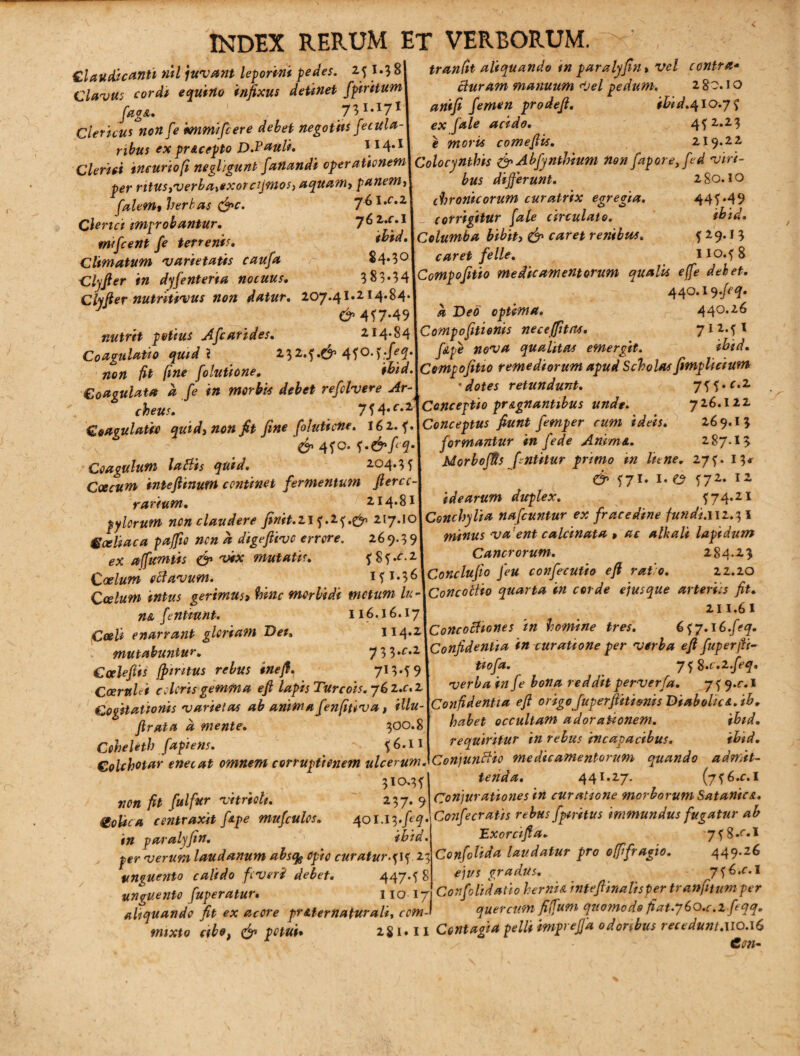 INDEX RERUM ET VERBORUM.
Claudicanti nil juvant leporini pedes. 251.38
Clavus cordi equino infixus detinet spiritum
sagæ. 731.171
Clericus non se immiscere debet negotiis secula-
ribus ex præcepto D.Pauli. 114.1
Clerici incuriosi negligunt sanandi operationem
per ritus,verba,exorcismos, aquam, panem,
salem, herbas &c. 761.c.2
Clerici improbantur. 762.c.1
miscent se terrenis. ibid.
Climatum varietatis causa 84.30
Clyster in dysenteria nocuus. 383.34
Clyster nutritivus non datur. 207.41.214.84.
& 457.49
nutrit potius Ascarides. 214.84
Coagulatio quid? 232.5.& 450.5.seq.
non fit sine solutione. ibid.
Coagulata à se in morbis debet resolvere Ar-
cheus. 754.c.2
Coagulatio quid, non fit sine solutione. 162.5.
& 450. 5.& seq.
Coagulum lactis quid. 204.35
Cœcum intestinum continet fermentum sterco-
rarium. 214.81
pylorum non claudere sinit.215.25.& 217.10
Cœliaca passio non à digestivo errore. 269.39
ex assumtis & vix mutatis. 585.c.2
Cœlum octavum. 151.36
Cœlum intus gerimus, hinc morbidi motum lu-
næ sentiunt. 116.16.17
Cœli enarrant gloriam Dei. 114.2
mutabuntur. 733.c.2
Cœlestis spiritus rebus inest. 713.59
Cœrulei coloris gemma est lapis Turcois. 762.c.2
Cogitationis varietas ab anima sensitiva, illu-
strata à mente. 300.8
Coheleth sapiens. 56.11
Colchotar enecat omnem corruptionem ulcerum.
310.35
non fit sulfur vitrioli. 237. 9
Colica contraxit sæpe musculos. 401.13.seq.
in paralysin. ibid.
per verum laudanum absq; opio curatur.515 23
unguento calido foveri debet. 447.58
unguento superatur. 110 17
aliquando fit ex acore præternaturali, com-
mixto cibo, & potui. 281.11
transit aliquando in paralysin, vel contra-
cturam manuum vel pedum. 280.10
anisi semen prodest. ibid.410.75
ex sale acido. 452.23
è moris comestis. 219.22
Colocynthis & Absynthium non sapore, sed viri-
bus differunt. 280.10
chronicorum curatrix egregia. 445.49
corrigitur sale circulato. ibid.
Columba bibit, & caret renibus. 529.13
caret felle. 110.58
Compositio medicamentorum qualis esse debet.
440.19.seq.
à Deo optima. 440.26
Compositionis necessitas. 712.51
sæpè nova qualitas emergit. ibid.
Compositio remediorum apud Scholas simplicium
dotes retundunt. 755.c.2
Conceptio prægnantibus unde. 726.122
Conceptus fiunt semper cum ideis. 269.13
formantur in sede Animæ. 287.13
Morbosus sentitur primo in liene. 275. 13.
& 571. 1.& 572. 12
idearum duplex. 574.21
Conchylia nascuntur ex fracedine fundi.112.31
minus valent calcinata, ac alkali lapidum
Cancrorum. 284.23
Conclusio seu consecutio est ratio. 22.20
Concoctio quarta in corde ejusque arteriis fit.
211.61
Concoctiones in homine tres. 657.16.seq.
Confidentia in curatione per verba est supersti-
tiosa. 758.c.2.seq.
verba in se bona reddit perversa. 759.c.1
Confidentia est origo superstitionis Diabolicæ. ib.
habet occultam adorationem. ibid.
requiritur in rebus incapacibus. ibid.
Conjunctio medicamentorum quando admit-
tenda. 441.27. (756.c.1
Conjurationes in curatione morborum Satanicæ.
Consecratis rebus spiritus immundus fugatur ab
Exorcista. 758.c.1
Consolida laudatur pro ossifragio. 449.26
ejus gradus. 756.c.1
Consolidatio herniæ intestinalis per transitum per
quercum fissum quomodo fiat.760.c.2 seqq.
Contagia pelli impressa odoribus recedunt.110.16
Con-